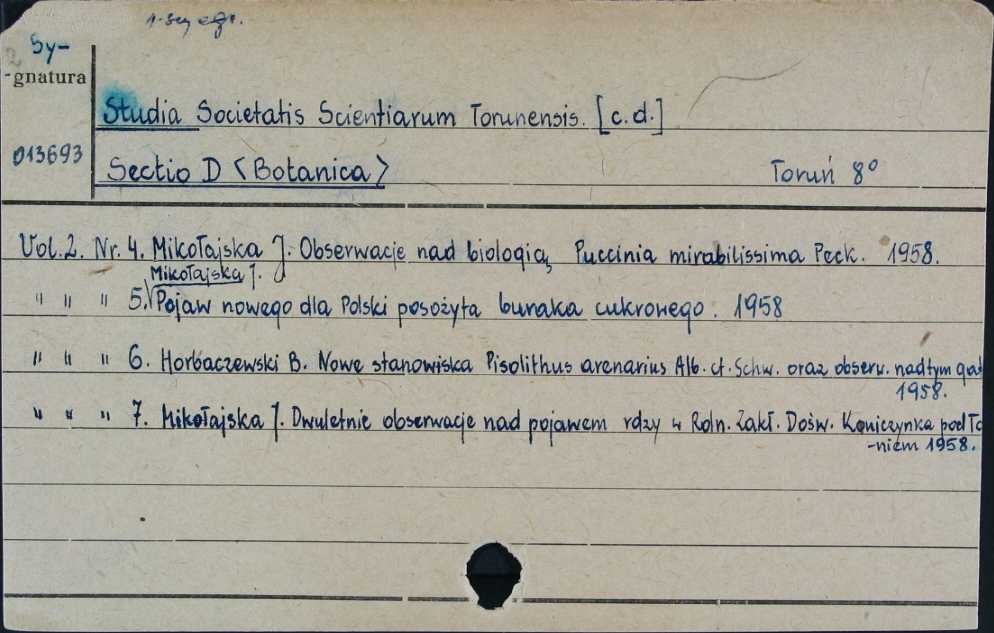 1-szy egz.
Sy-
-gnatura
Studia Societatis Scientiarum Torunensis. [c.d.]
013693
Sectio D <Botanica>
Toruń 8°
Vol. 2. Nr. 4. Mikołajska J. Obserwacje nad biologią Puccinia mirabilissima Peck. 1958.
Mikołajska J.
" " " 5. Pojaw nowego dla Polski posożyta buraka cukrowego. 1958
" " " 6. Horbaczewski B. Nowe stanowiska Pisolithus arenarius Alb. et. Schw. oraz obserw. nad tym gat
1958.
" " " 7. Mikołajska J. Dwuletnie obserwacje nad pojawem rdzy w Roln. Zakł. Dośw. Koniczynka pod To
-niem 1958.